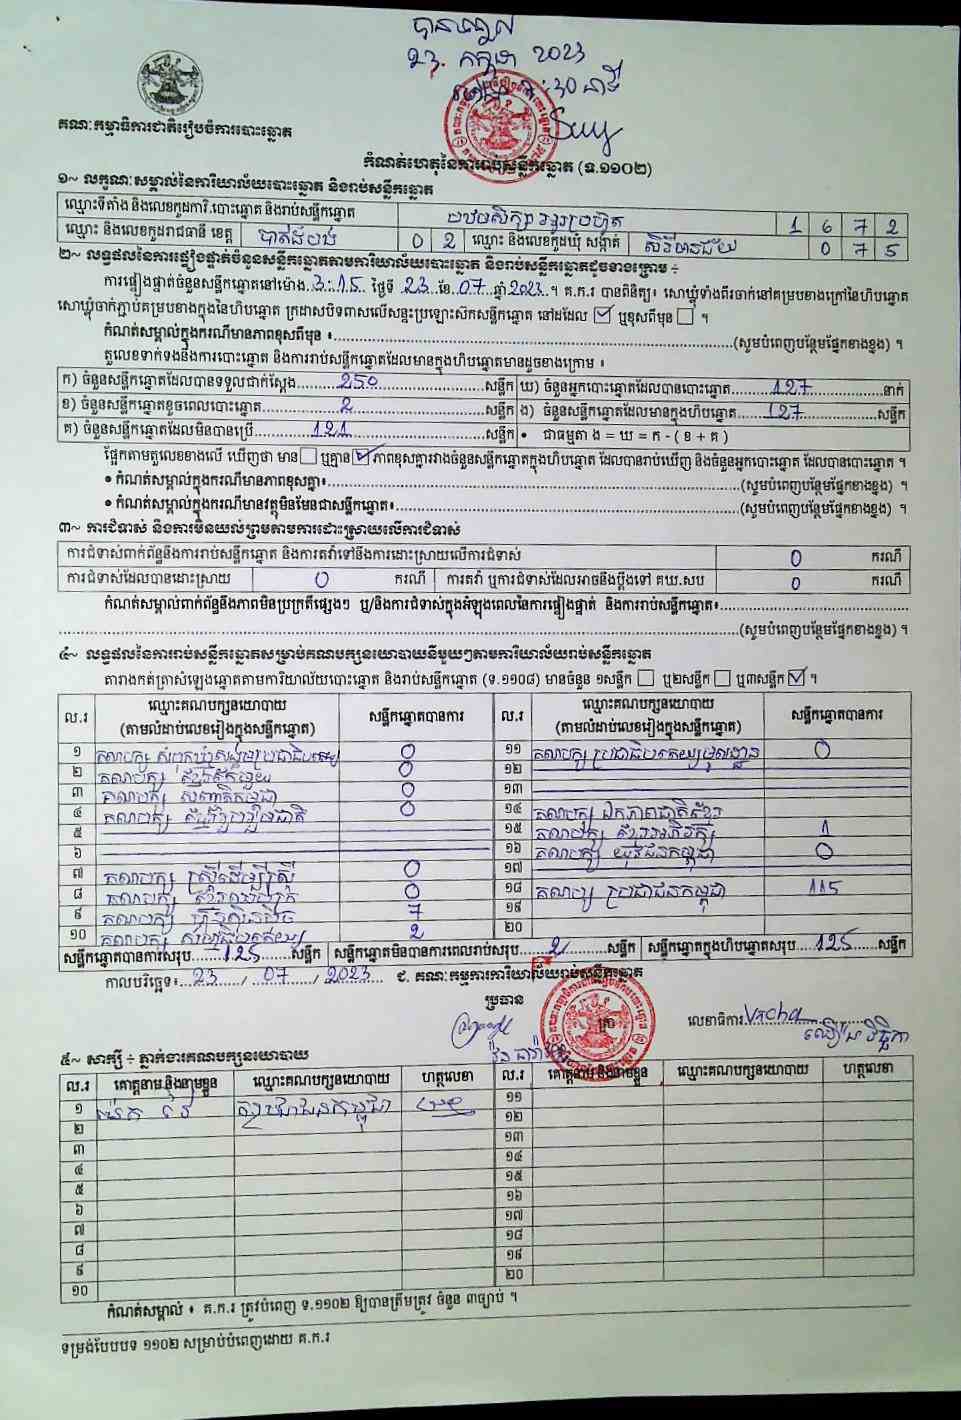 បានទទួល
23. កក្កដា 2023
:30 នាទី
គណៈកម្មាធិការជាតិរៀបចំការបោះឆ្នោត
កំណត់ហេតុនៃការរាប់សន្លឹកឆ្នោត (ទ.១១០២)
១~ លក្ខណៈសម្គាល់នៃការិយាល័យបោះឆ្នោត និងរាប់សន្លឹកឆ្នោត
ឈ្មោះទីតាំង និងលេខកូដការិ.បោះឆ្នោត និងរាប់សន្លឹកឆ្នោត បឋមសិក្សា 1 6 7 2
ឈ្មោះ និងលេខកូដរាជធានី ខេត្ត បាត់ដំបង 0 2 ឈ្មោះ និងលេខកូដឃុំ សង្កាត់ សិរីមានជ័យ 0 7 5
២~ លទ្ធផលនៃការផ្ទៀងផ្ទាត់ចំនួនសន្លឹកឆ្នោតតាមការិយាល័យបោះឆ្នោត និងរាប់សន្លឹកឆ្នោតដូចខាងក្រោម ÷
ការផ្ទៀងផ្ទាត់ចំនួនសន្លឹកឆ្នោតនៅម៉ោង 3:15 ថ្ងៃទី 23 ខែ 07 ឆ្នាំ 2023 ។ គ.ក.រ បានពិនិត្យ៖ សោឃ្លុំទាំងពីរចាក់នៅគម្របខាងក្រៅនៃហិបឆ្នោត
សោឃ្លុំចាក់ភ្ជាប់គម្របខាងក្នុងនៃហិបឆ្នោត ក្រដាសបិទពាសលើសន្ទះប្រឡោះសឹកសន្លឹកឆ្នោត នៅដដែល ☑ ឬខុសពីមុន ☐ ។
កំណត់សម្គាល់ក្នុងករណីមានភាពខុសពីមុន ៖ (សូមបំពេញបន្ថែមផ្នែកខាងខ្នង) ។
តួលេខទាក់ទងនឹងការបោះឆ្នោត និងការរាប់សន្លឹកឆ្នោតដែលមានក្នុងហិបឆ្នោតមានដូចខាងក្រោម ៖
ក) ចំនួនសន្លឹកឆ្នោតដែលបានទទួលជាក់ស្តែង 250 សន្លឹក ឃ) ចំនួនអ្នកបោះឆ្នោតដែលបានបោះឆ្នោត 127 នាក់
ខ) ចំនួនសន្លឹកឆ្នោតខូចពេលបោះឆ្នោត 2 សន្លឹក ង) ចំនួនសន្លឹកឆ្នោតដែលមានក្នុងហិបឆ្នោត 127 សន្លឹក
គ) ចំនួនសន្លឹកឆ្នោតដែលមិនបានប្រើ 121 សន្លឹក • ជាធម្មតា ង = ឃ = ក - ( ខ + គ )
ផ្អែកតាមតួលេខខាងលើ ឃើញថា មាន ☐ ឬគ្មាន ☑ ភាពខុសគ្នារវាងចំនួនសន្លឹកឆ្នោតក្នុងហិបឆ្នោត ដែលបានរាប់ឃើញ និងចំនួនអ្នកបោះឆ្នោត ដែលបានបោះឆ្នោត ។
• កំណត់សម្គាល់ក្នុងករណីមានភាពខុសគ្នា៖ (សូមបំពេញបន្ថែមផ្នែកខាងខ្នង) ។
• កំណត់សម្គាល់ក្នុងករណីមានវត្ថុមិនមែនជាសន្លឹកឆ្នោត៖ (សូមបំពេញបន្ថែមផ្នែកខាងខ្នង) ។
៣~ ការជំទាស់ និងការមិនយល់ព្រមតាមការដោះស្រាយលើការជំទាស់
ការជំទាស់ពាក់ព័ន្ធនឹងការរាប់សន្លឹកឆ្នោត និងការតវ៉ាទៅនឹងការដោះស្រាយលើការជំទាស់ 0 ករណី
ការជំទាស់ដែលបានដោះស្រាយ 0 ករណី ការតវ៉ា ឬការជំទាស់ដែលអាចនឹងប្តឹងទៅ គឃ.សប 0 ករណី
កំណត់សម្គាល់ពាក់ព័ន្ធនឹងភាពមិនប្រក្រតីផ្សេងៗ ឬ/និងការជំទាស់ក្នុងអំឡុងពេលនៃការផ្ទៀងផ្ទាត់ និងការរាប់សន្លឹកឆ្នោត៖
(សូមបំពេញបន្ថែមផ្នែកខាងខ្នង) ។
៤~ លទ្ធផលនៃការរាប់សន្លឹកឆ្នោតសម្រាប់គណបក្សនយោបាយនីមួយៗតាមការិយាល័យរាប់សន្លឹកឆ្នោត
តារាងកត់ត្រាសំឡេងឆ្នោតតាមការិយាល័យបោះឆ្នោត និងរាប់សន្លឹកឆ្នោត (ទ.១១០៨) មានចំនួន ១សន្លឹក ☐ ឬ២សន្លឹក ☐ ឬ៣សន្លឹក ☑ ។
ល.រ ឈ្មោះគណបក្សនយោបាយ (តាមលំដាប់លេខរៀងក្នុងសន្លឹកឆ្នោត) សន្លឹកឆ្នោតបានការ ល.រ ឈ្មោះគណបក្សនយោបាយ (តាមលំដាប់លេខរៀងក្នុងសន្លឹកឆ្នោត) សន្លឹកឆ្នោតបានការ
១ គណបក្ស សំបុកឃ្មុំសង្គមប្រជាធិបតេយ្យ 0 ១១ គណបក្ស ប្រជាធិបតេយ្យមូលដ្ឋាន 0
២ គណបក្ស ខ្មែរឈប់ក្រ 0 ១២
៣ គណបក្ស សញ្ជាតិកម្ពុជា 0 ១៣
៤ គណបក្ស ខ្មែររួបរួមជាតិ 0 ១៤ គណបក្ស ឯកភាពជាតិខ្មែរ
៥ ១៥ គណបក្ស ខ្មែរអភិរក្ស 1
៦ ១៦ គណបក្ស យុវជនកម្ពុជា 0
៧ គណបក្ស ស្រ្តីដើម្បីស្រ្តី 0 ១៧
៨ គណបក្ស 0 ១៨ គណបក្ស ប្រជាជនកម្ពុជា 115
៩ គណបក្ស ហ្វ៊ុនស៊ិនប៉ិច 7 ១៩
១០ គណបក្ស 2 ២០
សន្លឹកឆ្នោតបានការសរុប 125 សន្លឹក សន្លឹកឆ្នោតមិនបានការពេលរាប់សរុប 2 សន្លឹក សន្លឹកឆ្នោតក្នុងហិបឆ្នោតសរុប 125 សន្លឹក
កាលបរិច្ឆេទ៖ 23 / 07 / 2023 ជ. គណៈកម្មការការិយាល័យរាប់សន្លឹកឆ្នោត
ប្រធាន លេខាធិការ Vacha
៥~ សាក្សី ÷ ភ្នាក់ងារគណបក្សនយោបាយ
ល.រ គោត្តនាម និងនាមខ្លួន ឈ្មោះគណបក្សនយោបាយ ហត្ថលេខា ល.រ គោត្តនាម និងនាមខ្លួន ឈ្មោះគណបក្សនយោបាយ ហត្ថលេខា
១ ប្រជាជនកម្ពុជា ១១
២ ១២
៣ ១៣
៤ ១៤
៥ ១៥
៦ ១៦
៧ ១៧
៨ ១៨
៩ ១៩
១០ ២០
កំណត់សម្គាល់ ៖ គ.ក.រ ត្រូវបំពេញ ទ.១១០២ ឱ្យបានត្រឹមត្រូវ ចំនួន ៣ច្បាប់ ។
ទម្រង់បែបបទ ១១០២ សម្រាប់បំពេញដោយ គ.ក.រ